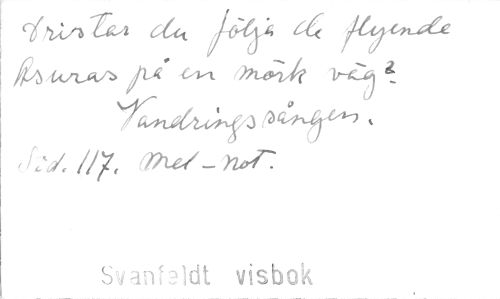 Dristar du följa de flyende
Asuras på en mörk väg?
Vandringssången.
Sid. 117. Mel-not.
Svanfeldt visbok